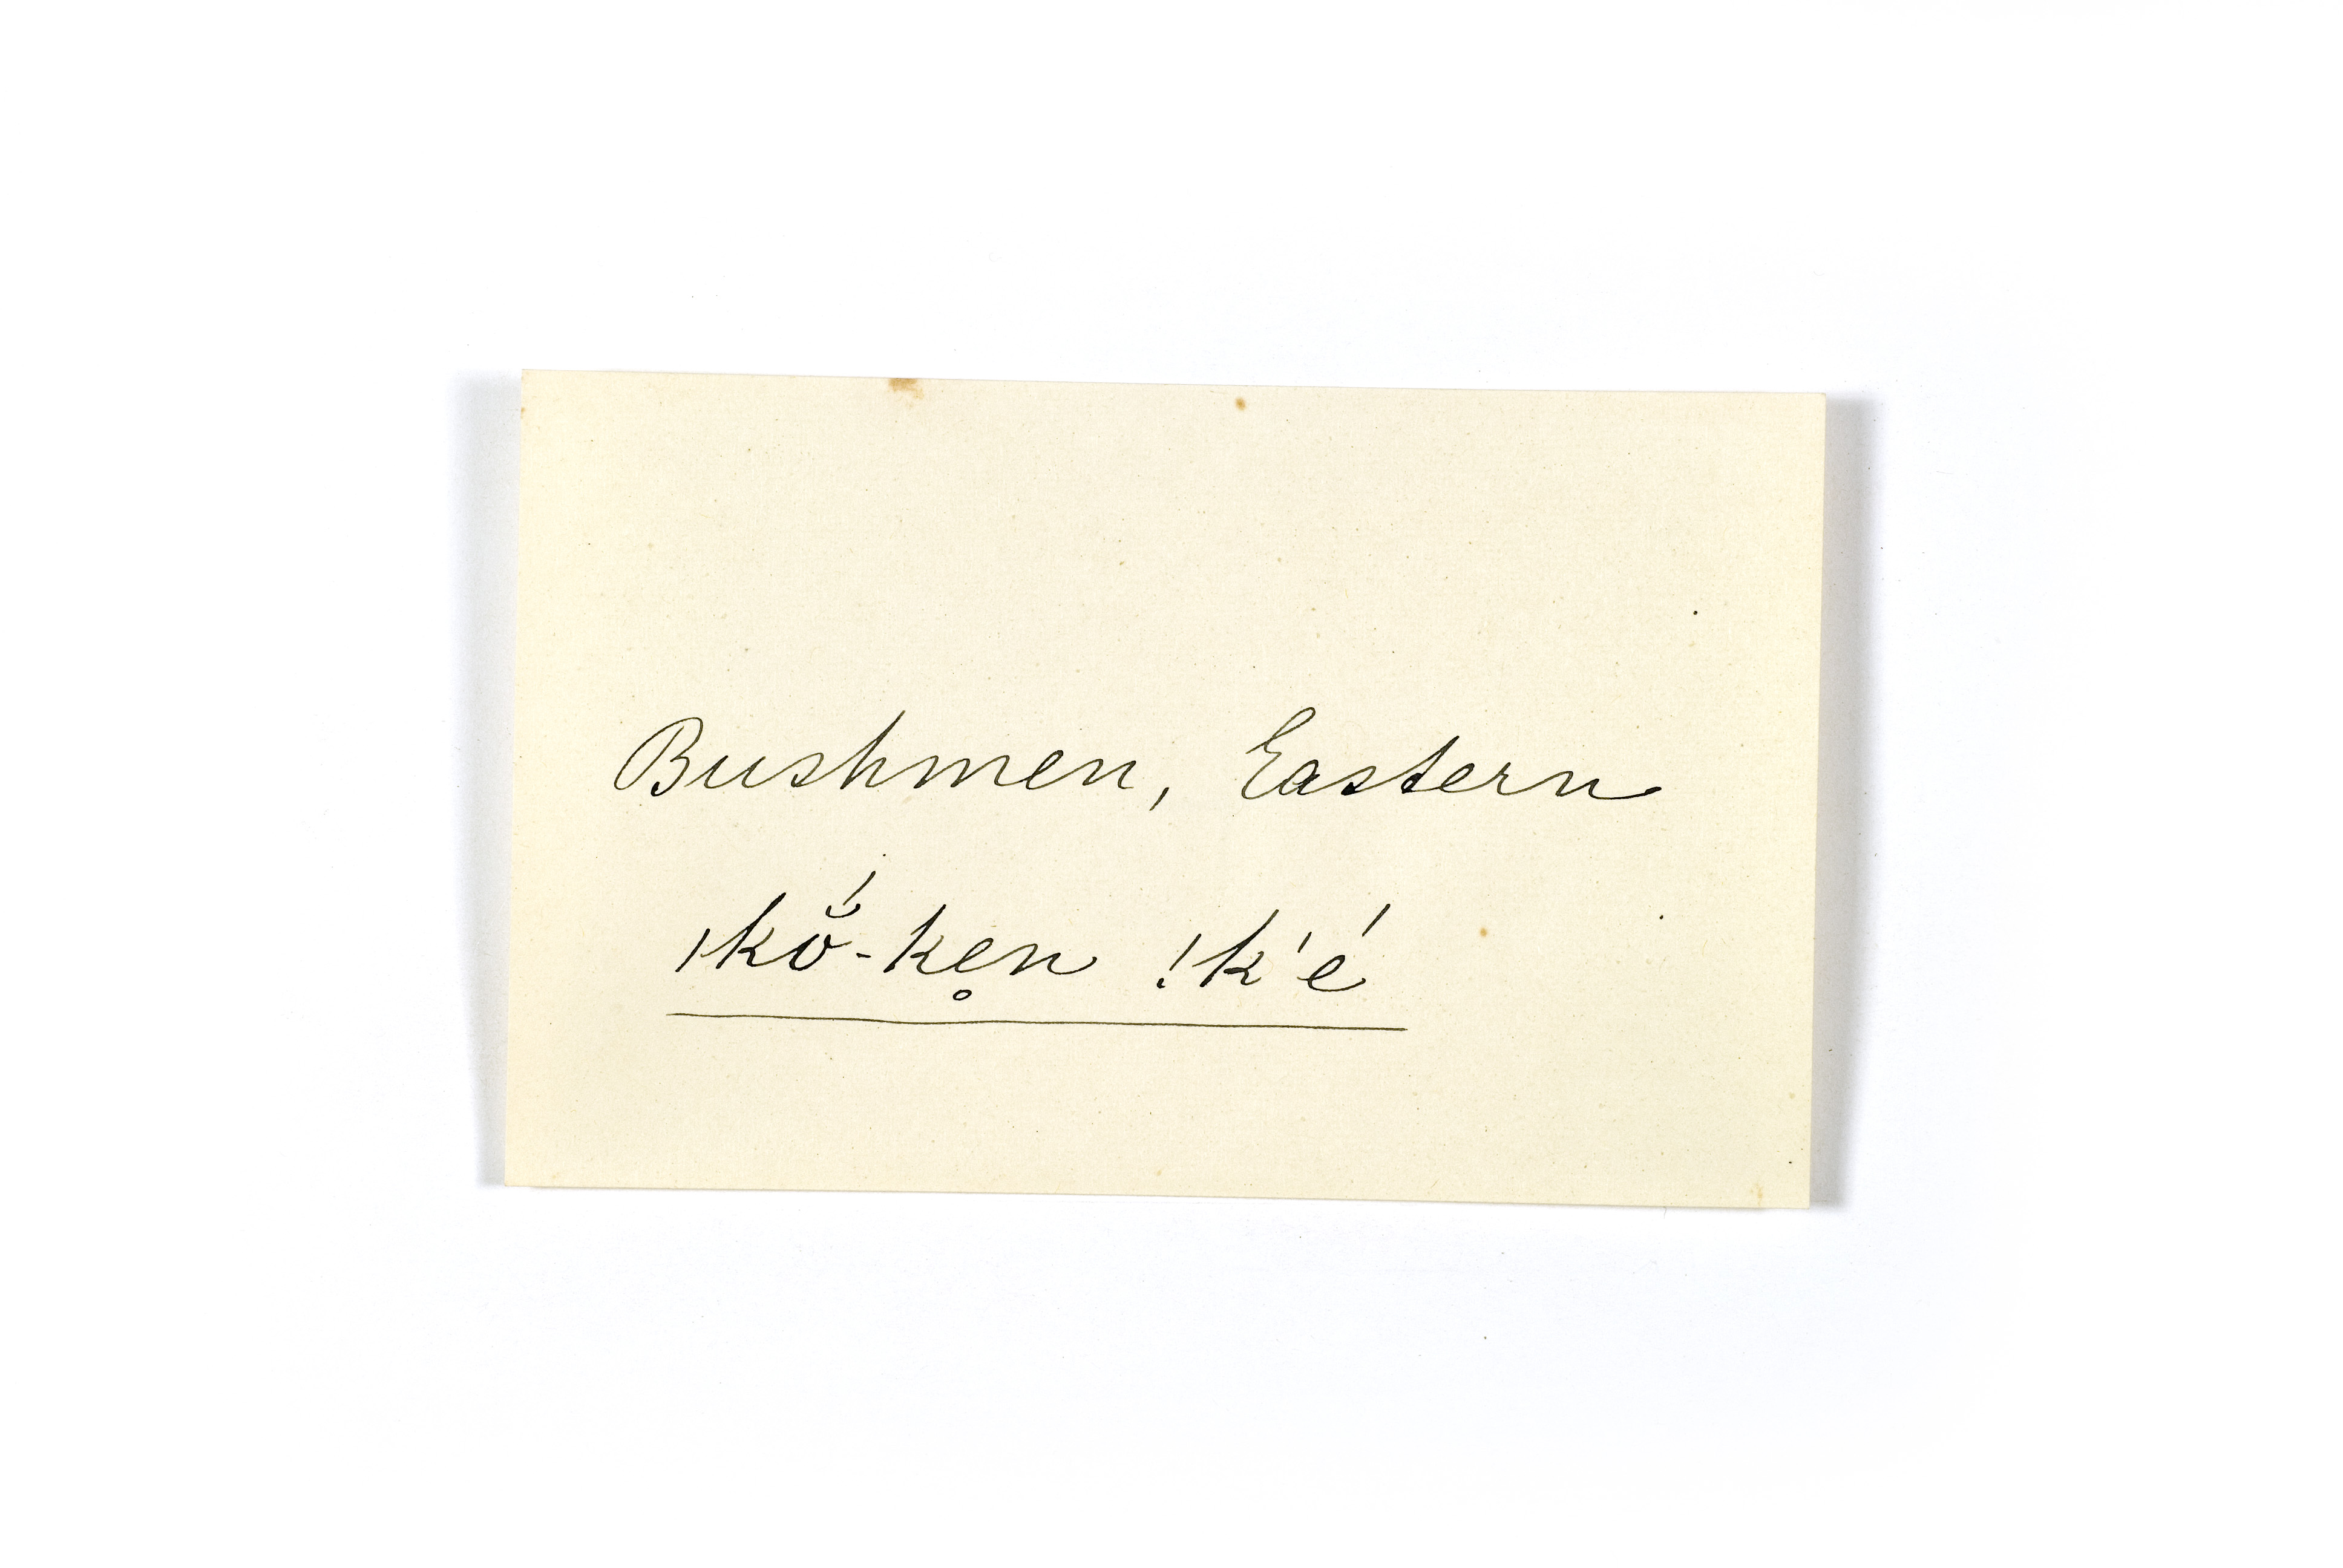 Bushmen, Eastern
ǀkŏ́-ke̥n !k'é